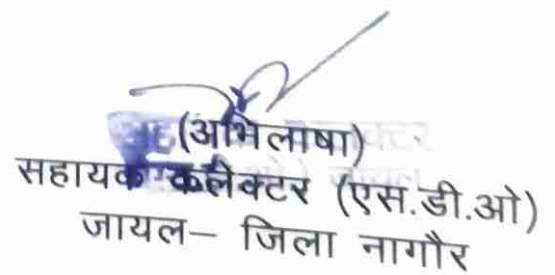 (अभिलाषा)
सहायक कलेक्टर (एस.डी.ओ)
जायल– जिला नागौर